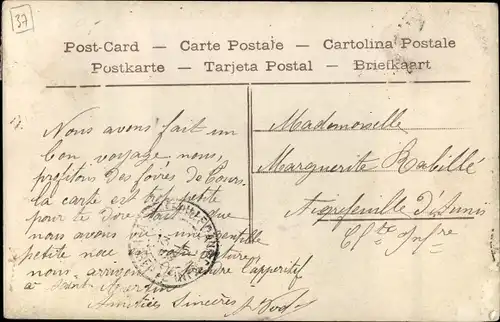 37
Post-Card — Carte Postale — Cartolina Postale
Postkarte — Tarjeta Postal — Briefkaart
Nous avons fait un
bon voyage, nous
profitons des foires de Tours.
la carte est trop petite
pour te dire tout que
nous avons vu une gentille
petite
nous arrivons prendre l'apperitif
a Saint Martin
Amitiées Sincères
Mademoiselle
Marguerite Rabillé
Aigrefeuille d'Aunis
Ch.te Infre